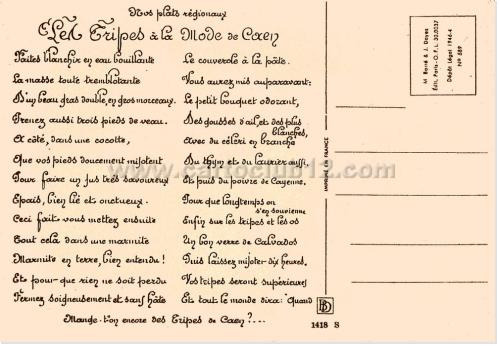 Nos plats régionaux
Les Tripes à la Mode de Caen
Faites blanchir en eau bouillante
La masse toute tremblotante
D'un beau gras double, en gros morceaux.
Prenez aussi trois pieds de veau.
Et côté, dans une cocotte,
Que vos pieds doucement mijotent
Pour faire un jus très savoureux
Epais, bien lié et onctueux.
Ceci fait vous mettez ensuite
Tout celà dans une marmite
Marmite en terre, bien entendu !
Et pour que rien ne soit perdu
Fermez soigneusement et sans hâte
Le couvercle à la pâte.
Vous aurez mis auparavant:
Le petit bouquet odorant,
Des gousses d'ail, et des plus blanches,
Avec du céleri en branche
Du thym et du laurier aussi,
Et puis du poivre de Cayenne,
Pour que longtemps on s'en souvienne
Enfin sur les tripes et les os
Un bon verre de Calvados
Puis laissez mijoter dix heures.
Vos tripes seront supérieures
Et tout le monde dira: "Quand
Mange-t'on encore des Tripes de Caen ?...
M. Barré & J. Dayez
Édit. Paris-O.P.L. 30.0037
Dépôt légal 1946-4
N° 889
IMPRIMÉ EN FRANCE
BD
1418 S
www.cartoclub12.com